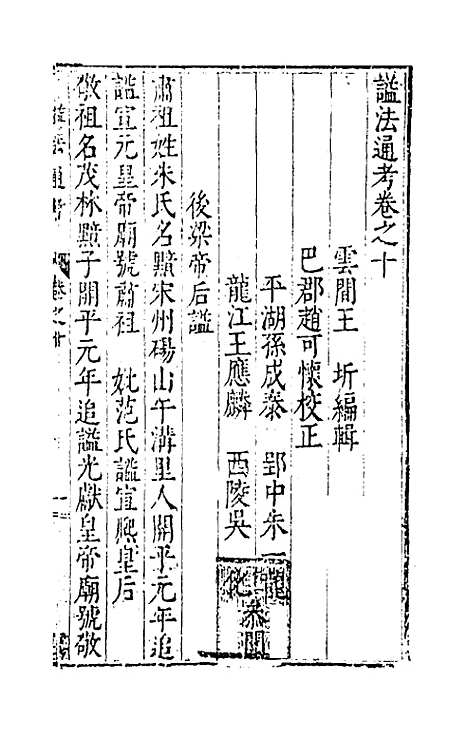 謚法通考卷之十
雲間王　圻編輯
巴郡趙可懷校正
平湖孫成泰　郢中朱一
龍江王應麟　西陵吳
後梁帝后謚
肅祖姓朱氏名黯宋州碭山午溝里人開平元年追
謚宣元皇帝廟號肅祖　妣范氏謚宣熙皇后
敬祖名茂林黯子開平元年追謚光獻皇帝廟號敬
卷之十